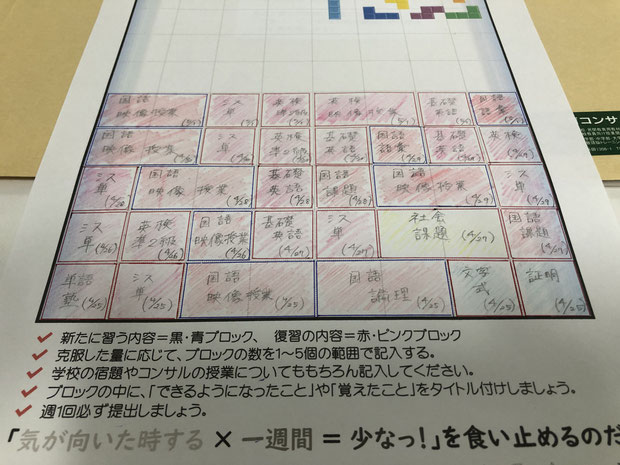 国語 ミス 英検 英検 基礎 国語
映像授業 単 準2級 映像授業 英語 語彙
国語 ミス 英検 基礎 国語 基礎 英検
映像授業 単 準2級 英語 語彙 英語
ミス 国語 基礎 国語 国語 ミス
単 映像授業 英語 課題 映像授業 単
(4/28) (4/28) (4/28) (4/28) (4/29) (4/29)
ミス 英検 国語 基礎 ミス 社会 国語
単 準2級 映像授業 英語 単 課題 課題
(4/26) (4/26) (4/26) (4/27) (4/27) (4/27)
単語 ミス 国語 国語 文字 証明
塾 単 映像授業 論理 式
(4/25) (4/25) (4/25) (4/25) (4/25) (4/25)
コンサ
✓ 新たに習う内容=黒・青ブロック、 復習の内容=赤・ピンクブロック
✓ 克服した量に応じて、ブロックの数を1~5個の範囲で記入する。
✓ 学校の宿題やコンサルの授業についてももちろん記入してください。
✓ ブロックの中に、「できるようになったこと」や「覚えたこと」をタイトル付けしましょう。
✓ 週1回必ず提出しましょう。
「気が向いた時する × 一週間 = 少なっ!」を食い止めるのだ